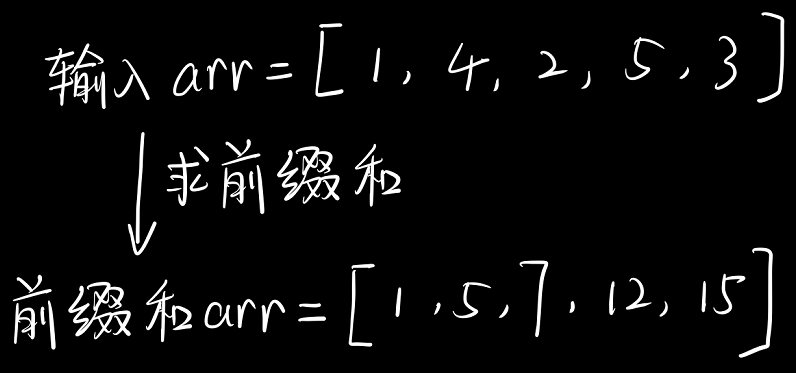 输入 arr = [1, 4, 2, 5, 3]
求前缀和
前缀和 arr = [1, 5, 7, 12, 15]